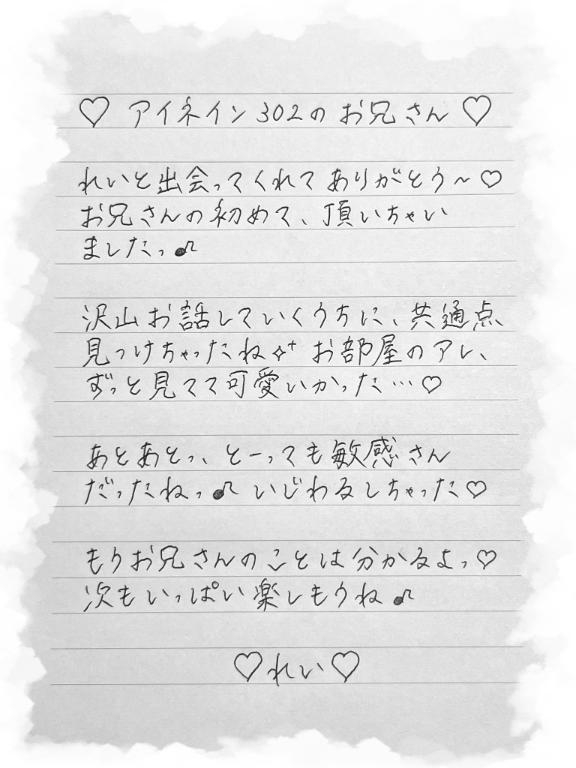 ♡ アイネイン302のお兄さん ♡
れいと出会ってくれてありがとう〜♡
お兄さんの初めて、頂いちゃい
ましたっ♪
沢山お話していくうちに、共通点
見つけちゃったね✧⁺ お部屋のアレ、
ずっと見ママ可愛いかった…♡
あとあとっ、とーっても敏感さん
だったねっ♪ いじわるしちゃった♡
もうお兄さんのことは分かるよっ♡
次もいっぱい楽しもうね♪
♡れい♡